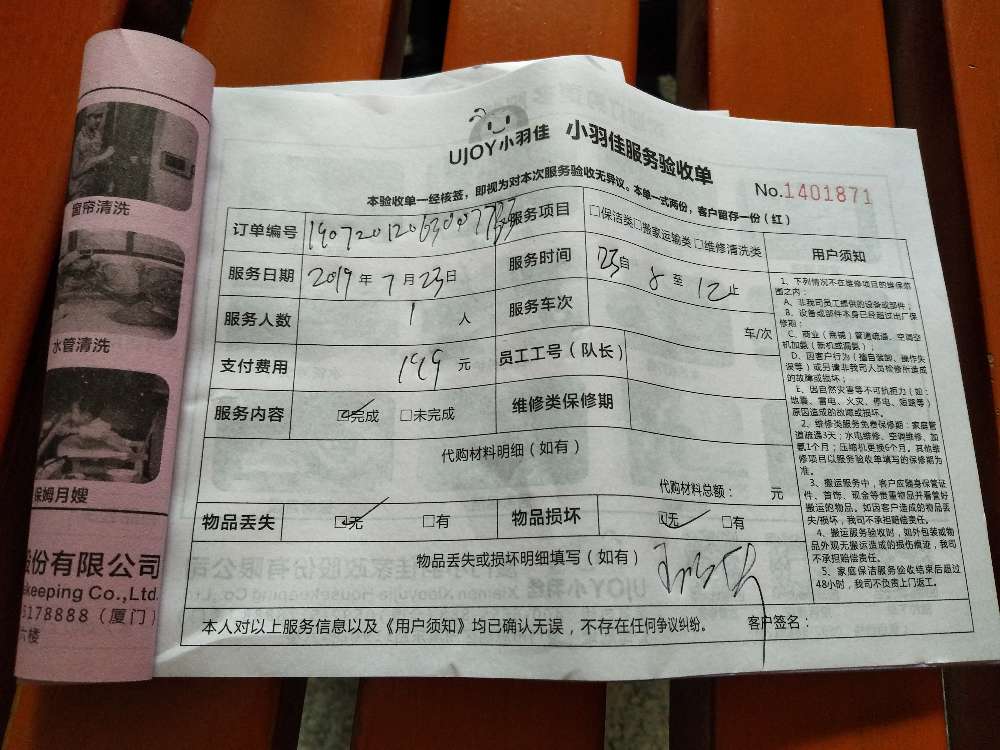 UJOY小羽佳 小羽佳服务验收单
本验收单一经核签，即视为对本次服务验收无异议。本单一式两份，客户留存一份（红）
No.1401871
订单编号
服务项目 □保洁类□搬家运输类 □维修清洗类
服务日期 2019年7月23日
服务时间 23自8至12止
服务人数 1人
服务车次 车/次
支付费用 199元
员工工号（队长）
服务内容 ☑完成 □未完成
维修类保修期
代购材料明细（如有）
代购材料总额： 元
物品丢失 ☑无 □有
物品损坏 ☑无 □有
物品丢失或损坏明细填写（如有）
本人对以上服务信息以及《用户须知》均已确认无误，不存在任何争议纠纷。 客户签名：
用户须知
1、下列情况不在维修项目的维保范
围之内：
A、非我司员工提供的设备或部件；
B、设备或部件本身已经超过出厂保
修期；
C、商业（店铺）管道疏通、空调空
机加氨（新机或漏氨）；
D、因客户行为（擅自装卸、操作失
误等）或另请非我司人员检修所造成
的故障或损坏；
E、因自然灾害等不可抗拒力（如：
地震、雷电、火灾、停电、阻路等）
原因造成的故障或损坏。
2、维修类服务免费保修期：家庭管
道疏通3天；水电维修、空调维修、加
氨1个月；压缩机更换6个月。其他维
修项目以服务验收单填写的保修期为
准。
3、搬运服务中，客户应随身保管证
件、首饰、现金等贵重物品并看管好
搬运的物品。如因客户造成的物品丢
失/损坏，我司不承担赔偿责任。
4、搬运服务验收时，如外包装或物
品外观无搬运造成的损伤痕迹，我司
不承担赔偿责任。
5、家庭保洁服务验收结束后超过
48小时，我司不负责上门返工。
窗帘清洗
水管清洗
保姆月嫂
份有限公司
ekeeping Co.,Ltd.
5178888（厦门）
六楼